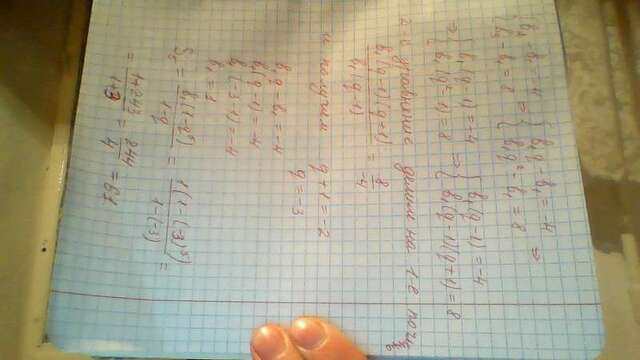 { b₂ - b₁ = -4 ⇒ { b₁q - b₁ = -4 ⇒
{ b₃ - b₁ = 8 { b₁q² - b₁ = 8
⇒ { b₁(q-1) = -4 ⇒ { b₁(q-1) = -4
{ b₁(q²-1) = 8 { b₁(q-1)(q+1) = 8
2-е уравнение делим на 1-е
b₁(q-1)(q+1) / b₁(q-1) = 8 / -4
и получем q+1 = -2
q = -3
b₁q - b₁ = -4
b₁(q-1) = -4
b₁(-3-1) = -4
b₁ = 1
S₅ = b₁(1-q⁵) / 1-q = 1(1-(-3)⁵) / 1-(-3) =
= 1+243 / 1+3 = 244 / 4 = 61